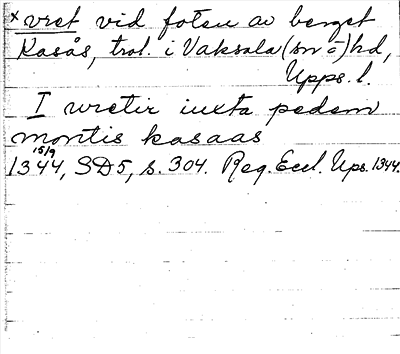 ×vret vid foten av berget
Kasås, trol. i Vaksala (sn o) hd,
Upps. l.
I wretir iuxta pedem
montis kasaas
15/9
1344, SD5, s. 304. Reg. Eccl. Ups. 1344.